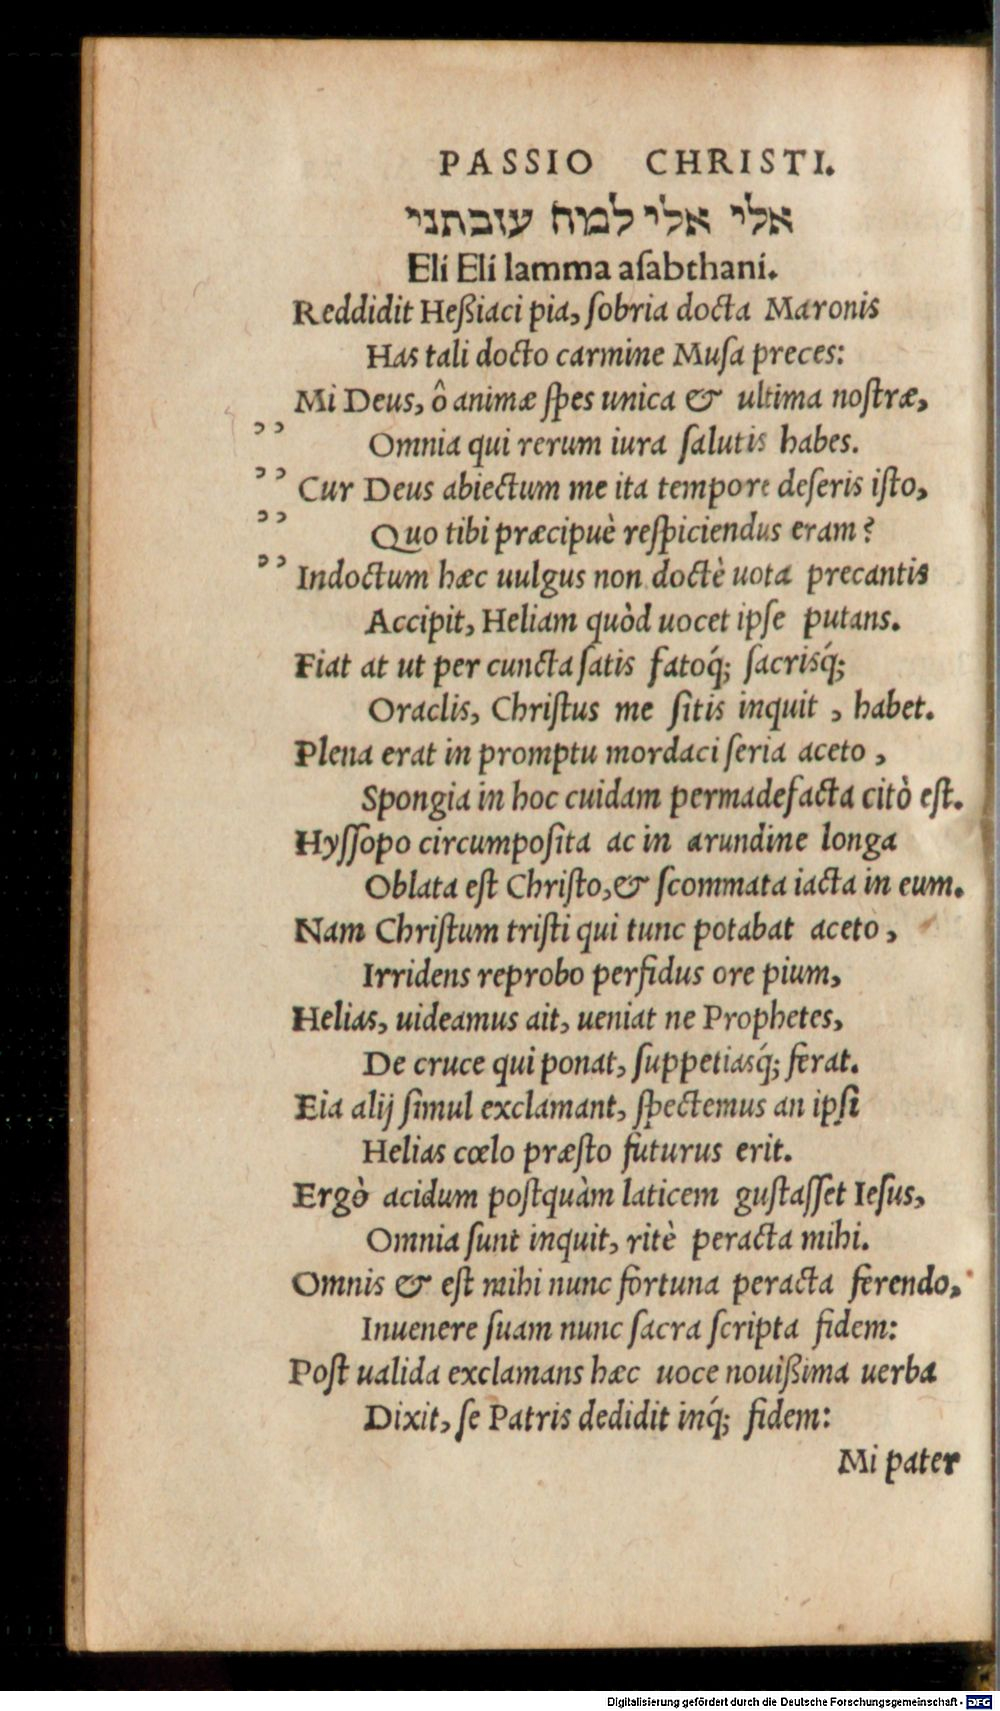 PASSIO CHRISTI.
אלי אלי למח עזבתני
Eli Eli lamma asabthani.
Reddidit Heßiaci pia, ſobria docta Maronis
Has tali docto carmine Muſa preces:
Mi Deus, ô animæ ſpes unica & ultima noſtræ,
ɔɔ Omnia qui rerum iura ſalutis habes.
ɔɔ Cur Deus abiectum me ita tempore deſeris iſto,
ɔɔ Quo tibi præcipuè reſpiciendus eram?
ɔɔ Indoctum hæc uulgus non doctè uota precantis
Accipit, Heliam quòd uocet ipſe putans.
Fiat at ut per cuncta ſatis fatoq́; ſacrisq́;
Oraclis, Chriſtus me ſitis inquit, habet.
Plena erat in promptu mordaci ſeria aceto,
Spongia in hoc cuidam permadefacta citò eſt.
Hyſſopo circumpoſita ac in arundine longa
Oblata eſt Chriſto, & ſcommata iacta in eum.
Nam Chriſtum triſti qui tunc potabat aceto,
Irridens reprobo perfidus ore pium,
Helias, uideamus ait, ueniat ne Prophetes,
De cruce qui ponat, ſuppetiasq́; ferat.
Eia alij ſimul exclamant, ſpectemus an ipſi
Helias cœlo præſto futurus erit.
Ergò acidum poſtquàm laticem guſtaſſet Ieſus,
Omnia ſunt inquit, ritè peracta mihi.
Omnis & eſt mihi nunc fortuna peracta ferendo,
Inuenere ſuam nunc ſacra ſcripta fidem:
Poſt ualida exclamans hæc uoce nouißima uerba
Dixit, ſe Patris dedidit inq́; fidem:
Mi pater
Digitalisierung gefördert durch die Deutsche Forschungsgemeinschaft - DFG